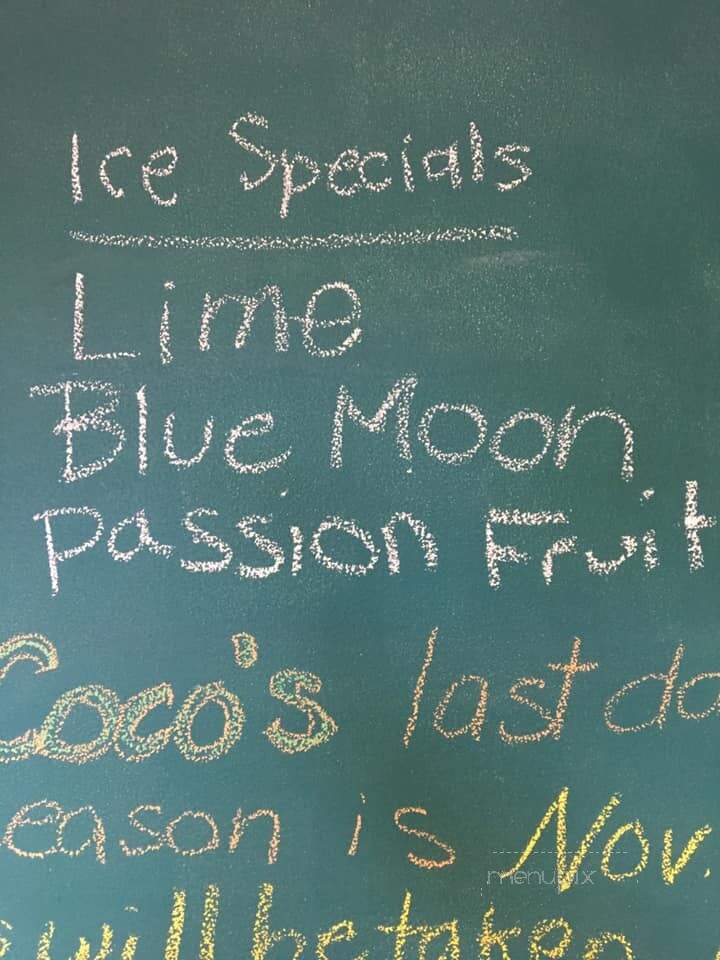 Ice Specials
Lime
Blue Moon
Passion Fruit
Coco's last da
eason is Nov.
menupix
will be taken